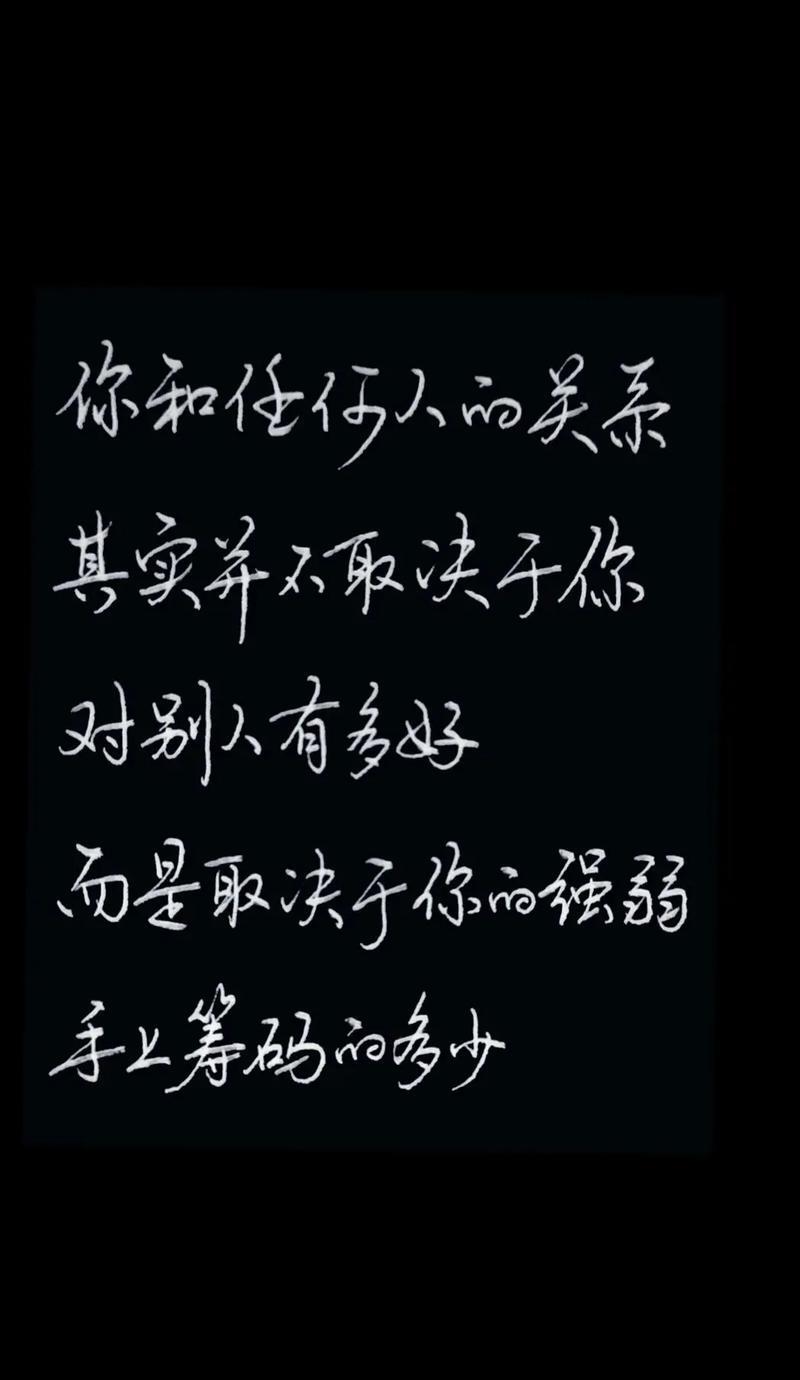 你和任何人的关系
其实并不取决于你
对别人有多好
而是取决于你的强弱
手上筹码的多少